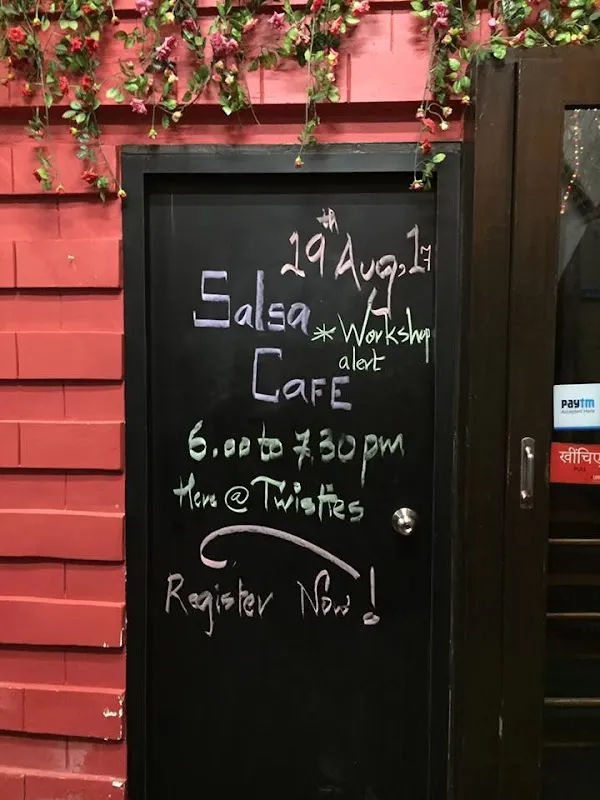 19th Aug, 17
Salsa
* Workshop
alert
CAFE
6.00 to 7.30 pm
Here @ Twisties
Register Now!
paytm
Accepted Here
खींचिए
PULL